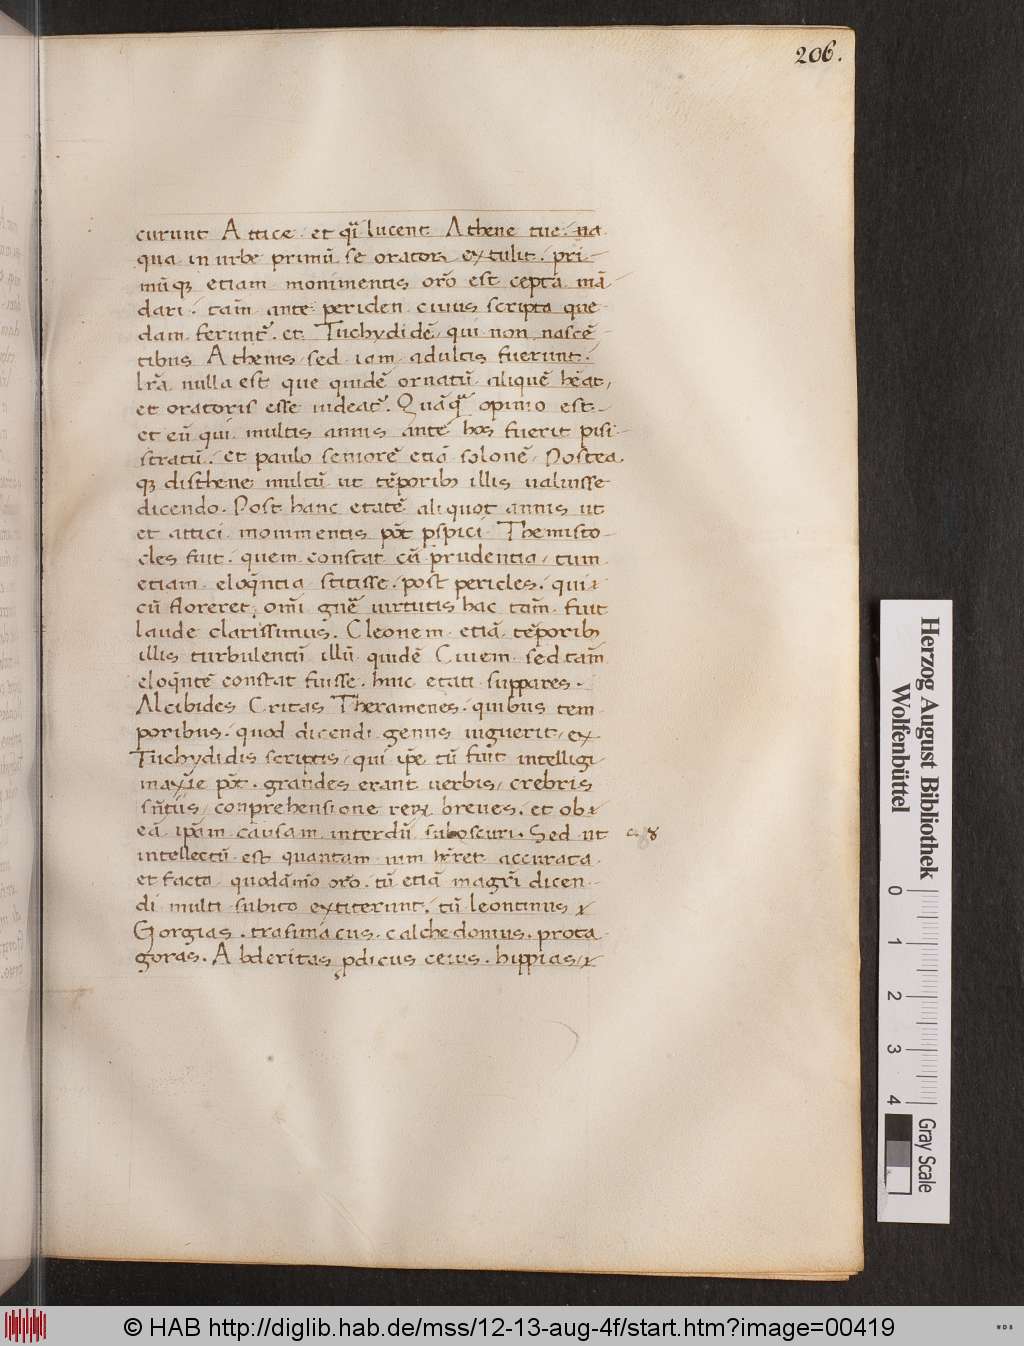 206.
curunt Attice et qͥ lucent Athene tue. na
qua in urbe primū se orator extulit. pri-
mūqꝫ etiam monimentis orō est cepta mā
dari. tam̄ ante periclen cuius scripta que
dam feruntᷣ. et Tuchydidē, qui non nascē
tibus Athenis, sed iam adultis fuerunt.
lr̄a nulla est que quidē ornatū aliquē hēat,
et oratoris esse uideatᷣ. Quāqᷓ opinio est.
et eū qui multis annis ante hos fuerit pisi-
stratū. et paulo seniorē etiā solonē. Postea
qꝫ clisthene multū ut tēporibꝫ illis ualuisse
dicendo. Post hanc etatē aliquot annis ut
et attici monimentis pōt pspici Themisto-
cles fuit. quem constat cū prudentia, tum
etiam eloqn̄tia stitisse. post pericles. qui
cū floreret, omī gn̄e uirtutis hac tam̄ fuit
laude clarissimus. Cleonem etiā tēporibꝫ
illis turbulentū illū quidē Ciuem sed tam̄
eloqn̄tē constat fuisse. huic etati suppares.
Alcibides Critas Theramenes. quibus tem
poribus quod dicendi genus uiguerit, ex
Tuchydidis scriptis, qui ip̄e tū fuit intelligi
maxīe pōt. grandes erant uerbis, crebris
sn̄tiis, conprehensione reꝝ breues. et ob
eā ip̄am causam interdū suboscuri. Sed ut
c. 8
intellectū est quantam uim hr̄et accurata
et facta quodāmō orō. tū etiā magr̄i dicen-
di multi subito extiterunt. tū leontinus
Gorgias. trasimacus. calchedonius. prota
goras. Abderitas pdicus ceius. hippias,
Herzog August Bibliothek
Wolfenbüttel
0 1 2 3 4
Gray Scale
© HAB http://diglib.hab.de/mss/12-13-aug-4f/start.htm?image=00419